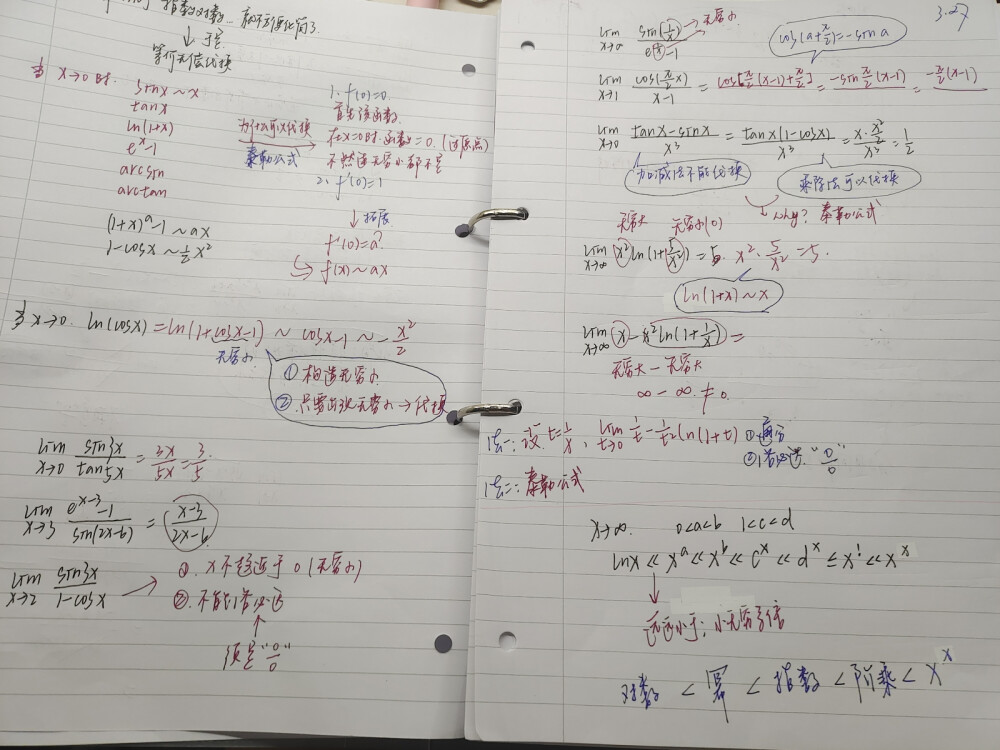 指数对数
↓ 于是
等价无穷代换
当 x→0 时. sinx ~ x
tanx
ln(1+x)
e^x-1
arcsin
arctan
(1+x)^a-1 ~ ax
1-cosx ~ 1/2 x²
为什么可以代换
泰勒公式
1. f(0)=0.
首先该函数
在x=0时.函数=0. (过原点)
不然连无穷小都不是
2. f'(0)=1
↓ 拓展
f'(0)=a?
↪ f(x) ~ ax
当 x→0. ln(cosx) = ln(1+cosx-1) ~ cosx-1 ~ -x²/2
无穷小
① 构造无穷小
② 只要出现无穷小→代换
lim x→0 sin3x/tan5x = 3x/5x = 3/5
lim x→3 (e^(x-3)-1)/sin(2x-6) = (x-3)/(2x-6)
lim x→2 sin3x/(1-cosx) →
①. x不趋近于0(无穷小)
②.不能洛必达
↑
须是"0/0"
3.27
lim x→∞ sin(1/x)/(e^(1/x)-1) → 无穷小
cos(a+π/2)=-sina
lim x→1 cos(π/2 x)/(x-1) = cos[π/2(x-1)+π/2] = -sinπ/2(x-1) = -π/2(x-1)
lim x→0 (tanx-sinx)/x³ = tanx(1-cosx)/x³ = (x·x²/2)/x³ = 1/2
加减法不能代换
乘除法可以代换
↳ why? 泰勒公式
无穷大 无穷小(0)
lim x→∞ x² ln(1+5/x²) = 5. x²·5/x² = 5.
ln(1+x) ~ x
lim x→∞ x - x² ln(1+1/x) =
无穷大 - 无穷大
∞ - ∞. ≠ 0.
法一: 设 t=1/x, lim t→0 1/t - 1/t² ln(1+t) ①通分
②洛必达. "0/0"
法二: 泰勒公式
x→∞. 0<a<b 1<c<d
lnx ≪ x^a ≪ x^b ≪ c^x ≪ d^x ≤ x! ≪ x^x
↓
远远小于; 小无穷多倍
对数 < 幂 < 指数 < 阶乘 < x^x